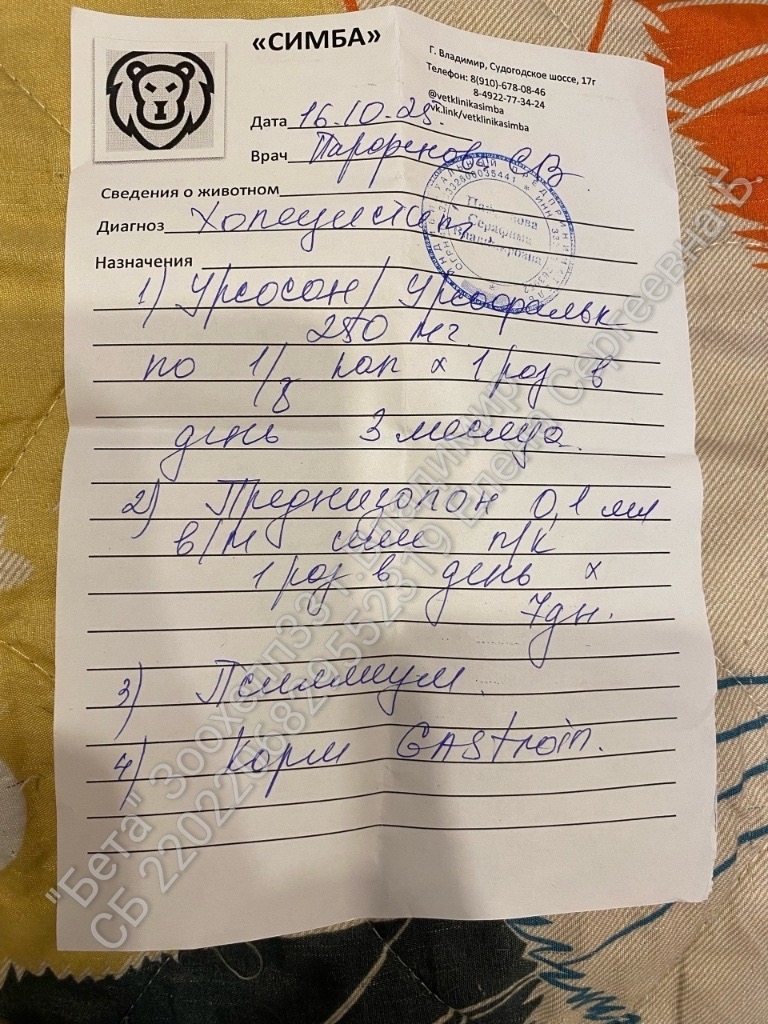 «СИМБА»
Г. Владимир, Судогодское шоссе, 17г
Телефон: 8(910)-678-08-46
8-4922-77-34-24
@vetklinikasimba
vk.link/vetklinikasimba
Дата 16.10.25.
Врач
Сведения о животном
Диагноз Холецистит
Назначения
1) Урсосан / Урсофальк
250 мг.
по 1/8 кап x 1 раз в
день 3 месяца.
2) Преднизолон 0,1 мл
в/м или п/к
1 раз в день x
7дн.
3) Псиллиум.
4) Корм GAStroin.
"Бета" Зоохелп33 г. Владимир
СБ 2202206829552319 Елена Сергеевна Б.